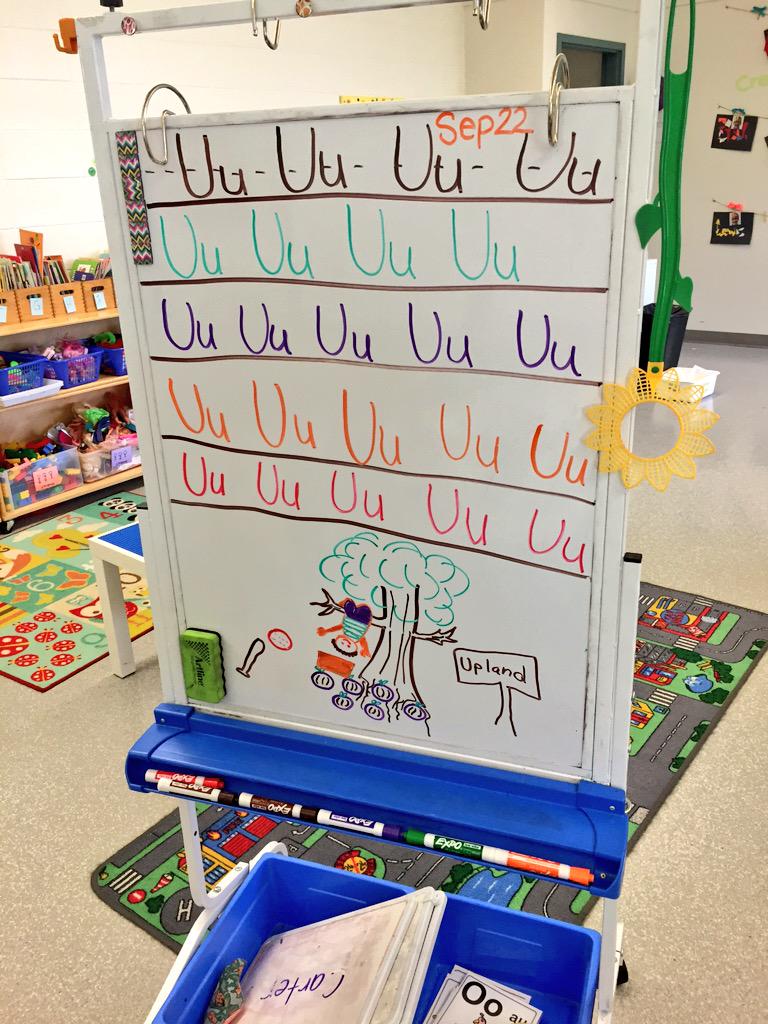 Sep22
Uu Uu Uu Uu
Uu Uu Uu Uu
Uu Uu Uu Uu Uu
Uu Uu Uu Uu Uu
Uu Uu Uu Uu Uu
Upland
Artline
EXPO EXPO EXPO EXPO EXPO EXPO
Carter
Oo au
H